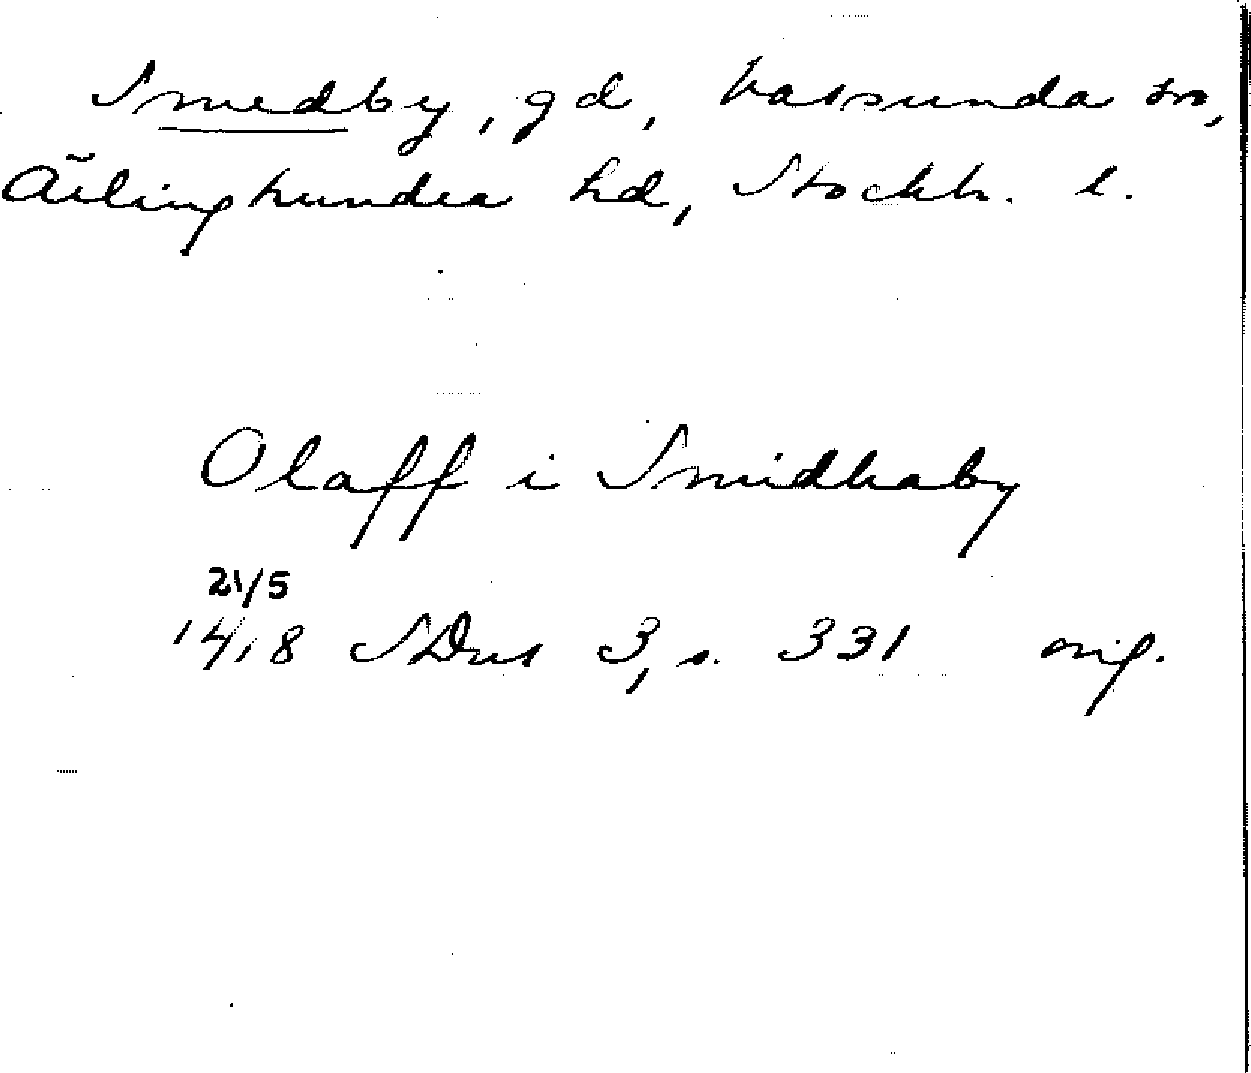 Smedby, gd, Vassunda sn,
Ärlinghundra hd, Stockh. l.
Olaff i Smidhaby
21/5
1418 SDns 3, s. 331 orig.